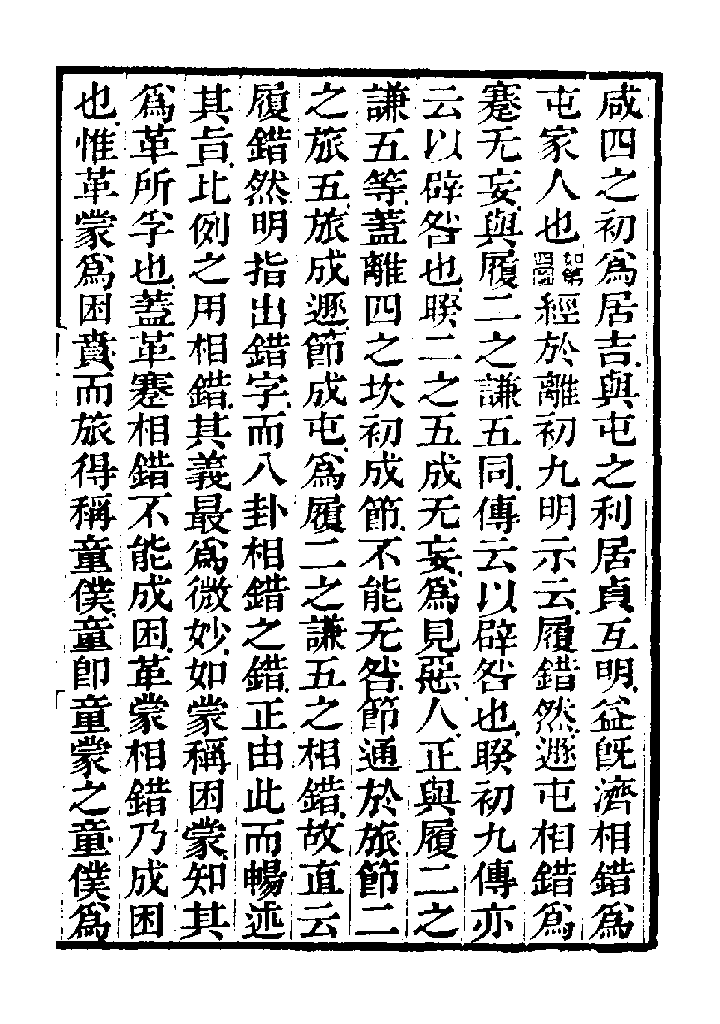 咸四之初爲居吉與屯之利居貞互明益旣濟相錯爲
屯家人也經於離初九明示云履錯然遯屯相錯爲
蹇无妄與履二之謙五同傳云以辟咎也睽初九傳亦
云以辟咎也睽二之五成无妄爲見惡人正與履二之
謙五等蓋離四之坎初成節不能无咎節通於旅節二
之旅五旅成遯節成屯爲履二之謙五之相錯故直云
履錯然明指出錯字而八卦相錯之錯正由此而暢述
其旨比例之用相錯其義最爲微妙如蒙稱困蒙知其
爲革所孚也蓋革蹇相錯不能成困革蒙相錯乃成困
也惟革蒙爲困賁而旅得稱童僕童卽童蒙之童僕爲